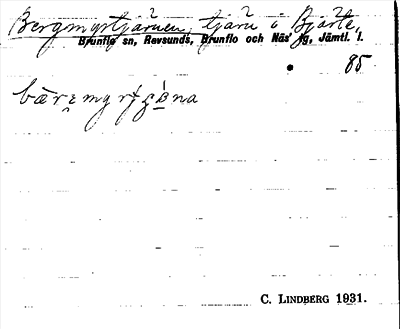 Bergmyrtjärnen, tjärn i Bjärte,
Brunflo sn, Revsunds, Brunflo och Näs' tg, Jämtl. l.
85
C. LINDBERG 1931.